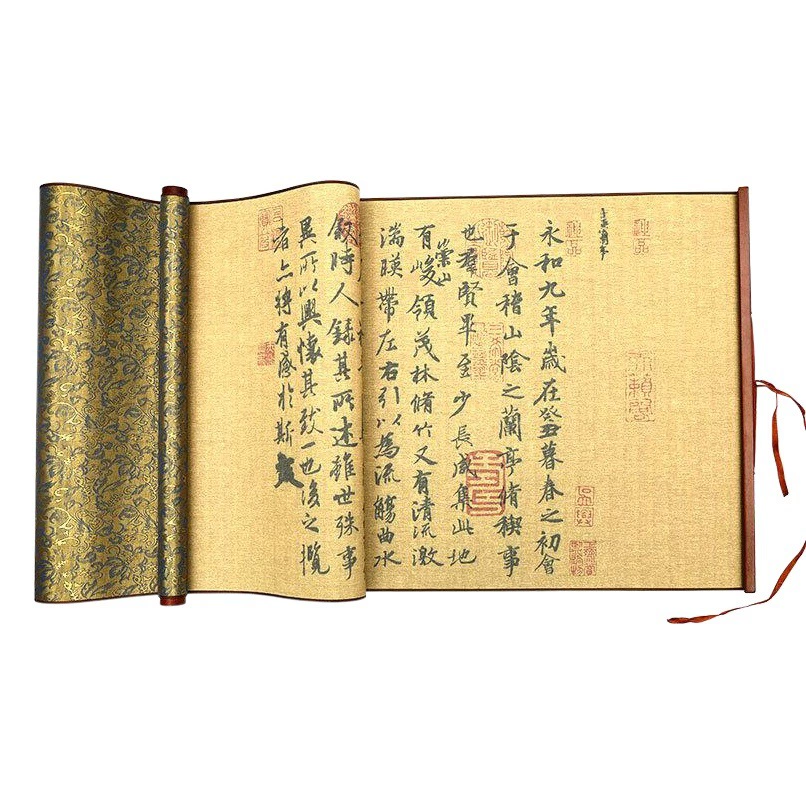 神品
神品
永和九年歲在癸丑暮春之初會
于會稽山陰之蘭亭脩稧事
也羣賢畢至少長咸集此地
有崇山峻領茂林脩竹又有清流激
湍暎帶左右引以為流觴曲水
敘時人錄其所述雖世殊事
異所以興懷其致一也後之攬
者亦將有感於斯文